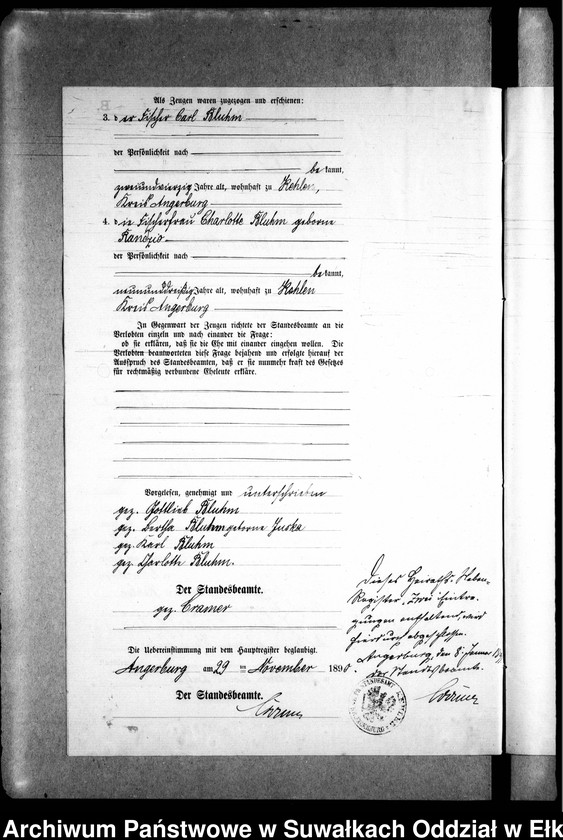 Als Zeugen waren zugezogen und erschienen:
3. der Fischer Carl Bluhm
der Persönlichkeit nach
be kannt,
zweiundvierzig Jahre alt, wohnhaft zu Kehlen,
Kreis Angerburg
4. die Fischerfrau Charlotte Bluhm geborne
der Persönlichkeit nach
be kannt,
neununddreißig Jahre alt, wohnhaft zu Kehlen
Kreis Angerburg
In Gegenwart der Zeugen richtete der Standesbeamte an die
Verlobten einzeln und nach einander die Frage:
ob sie erklären, daß sie die Ehe mit einander eingehen wollen. Die
Verlobten beantworteten diese Frage bejahend und erfolgte hierauf der
Ausspruch des Standesbeamten, daß er sie nunmehr kraft des Gesetzes
für rechtmäßig verbundene Eheleute erkläre.
Vorgelesen, genehmigt und unterschrieben
gez. Gottlieb Bluhm
gez. Bertha Bluhm geborne Juska
gez. Karl Bluhm
gez. Charlotte Bluhm.
Der Standesbeamte.
gez. Cramer
Die Uebereinstimmung mit dem Hauptregister beglaubigt.
Angerburg am 29 ten November 1890
Der Standesbeamte.
Dieses Heiraths-Neben-
Register, zwei Eintra-
gungen enthaltend, wird
hierdurch abgeschlossen.
Angerburg, den 8. Januar
der Standesbeamte.
Archiwum Państwowe w Suwałkach Oddział w Ełk